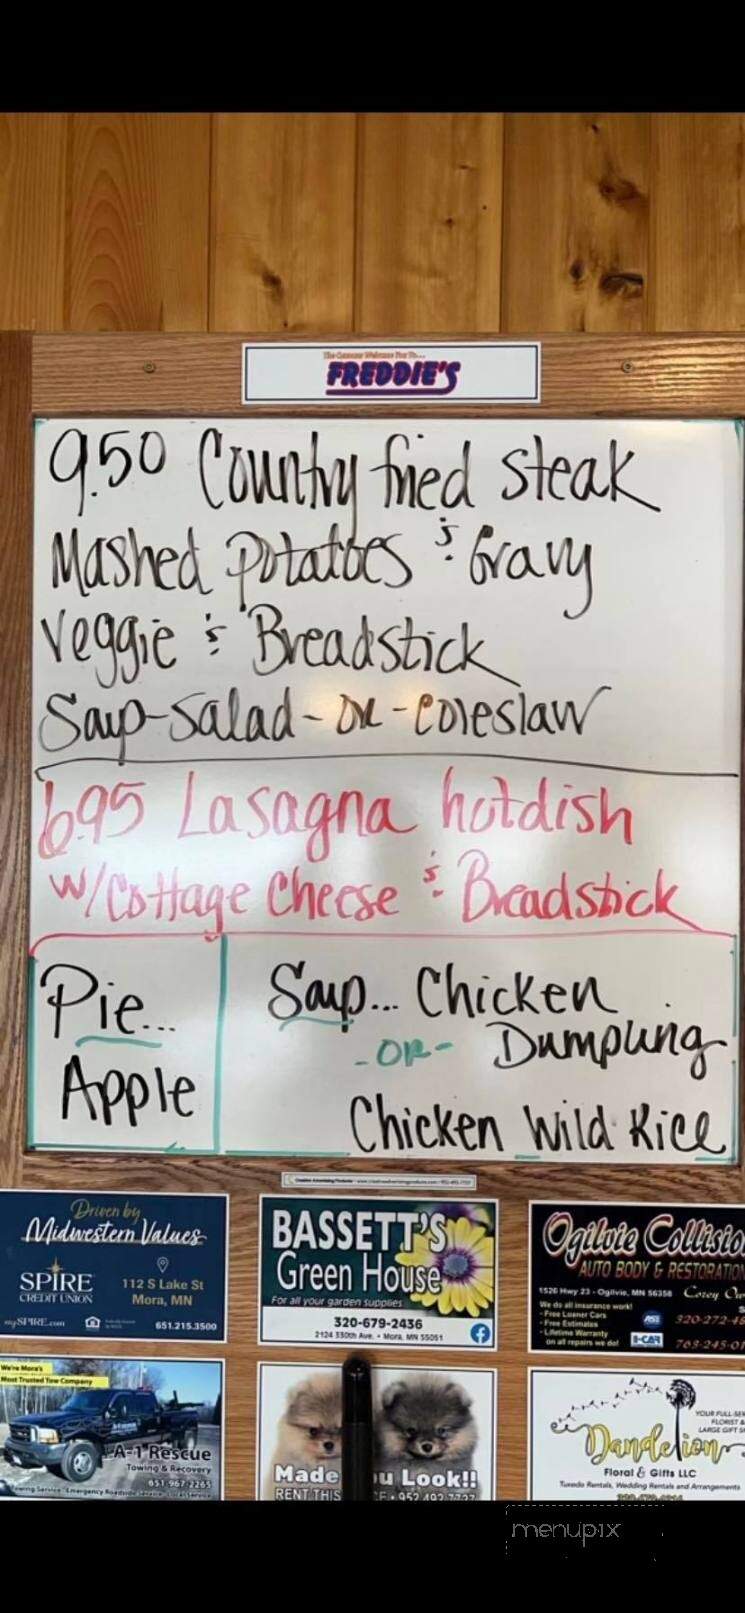 The Genuine Welcome For To...
FREDDIE'S
9.50 Country fried steak
Mashed Potatoes & Gravy
Veggie & Breadstick
Soup-Salad-OR-Coleslaw
6.95 Lasagna hotdish
w/Cottage Cheese & Breadstick
Pie...
Apple
Soup... Chicken
-OR- Dumpling
Chicken Wild Rice
Driven by
Midwestern Values
SPIRE
CREDIT UNION
112 S Lake St
Mora, MN
mySPIRE.com
651.215.3500
BASSETT'S
Green House
For all your garden supplies
320-679-2436
2124 330th Ave. • Mora, MN 55051
Ogilvie Collisio
AUTO BODY & RESTORATION
1526 Hwy 23 - Ogilvie, MN 56358
Corey Ow
We do all insurance work!
- Free Loaner Cars
- Free Estimates
- Lifetime Warranty
on all repairs we do!
ASE
I-CAR
320-272-4
763-245-01
We're Mora's
Most Trusted Tow Company
A-1 Rescue
Towing & Recovery
651-967-2265
Made
u Look!!
RENT THIS
CE • 952-492-7727
YOUR FULL-SER
FLORIST &
LARGE GIFT S
Dandelion
Floral & Gifts LLC
Tuxedo Rentals, Wedding Rentals and Arrangements
menupix